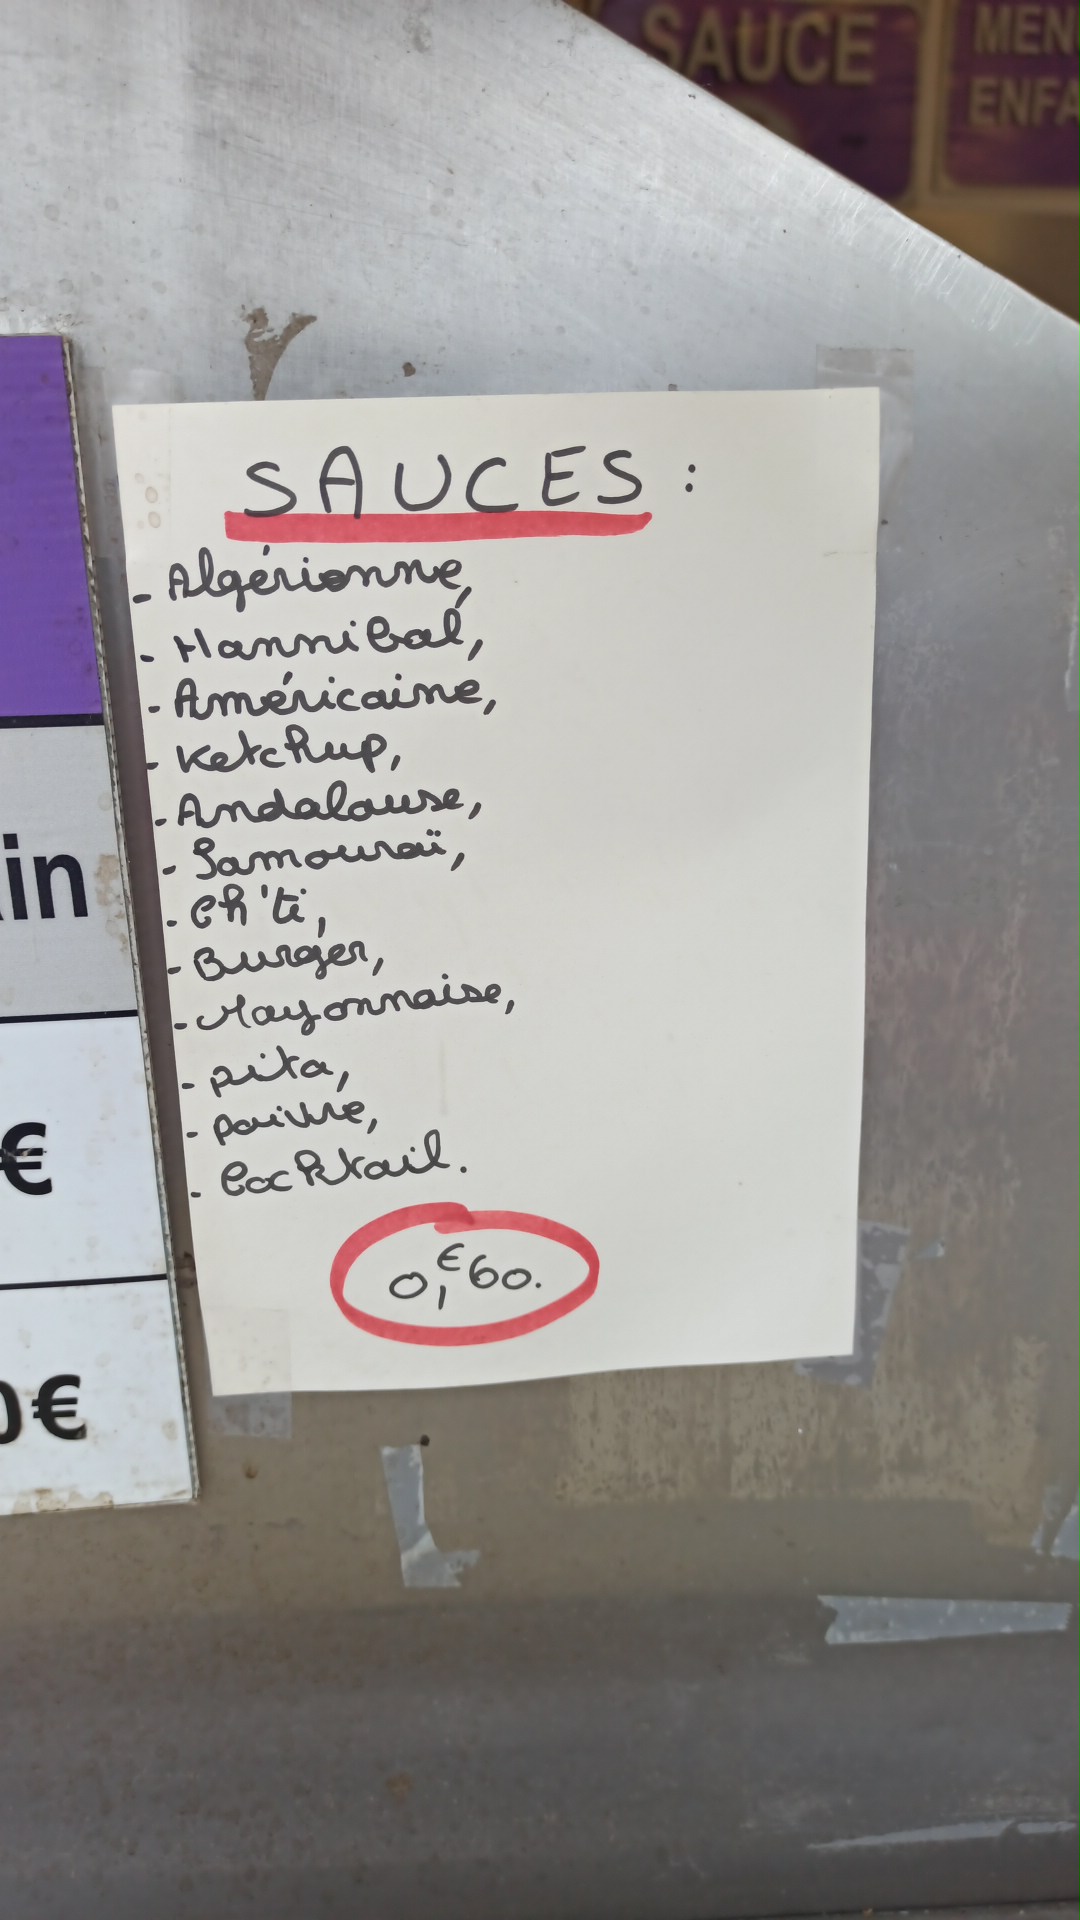 SAUCE
MENU
ENFA
SAUCES :
- Algérionne,
- Hannibal,
- Américaine,
- Ketchup,
- Andalouse,
- Samouraï,
- Ch'ti,
- Burger,
- Mayonnaise,
- pita,
- poivre,
- Cocktail.
0,€60.
in
€
0€